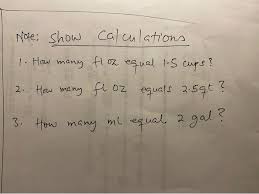 Note: Show Calculations
1. How many fl oz equal 1.5 cups?
2. How many fl oz equals 2.5qt?
3. How many ml equal 2 gal?